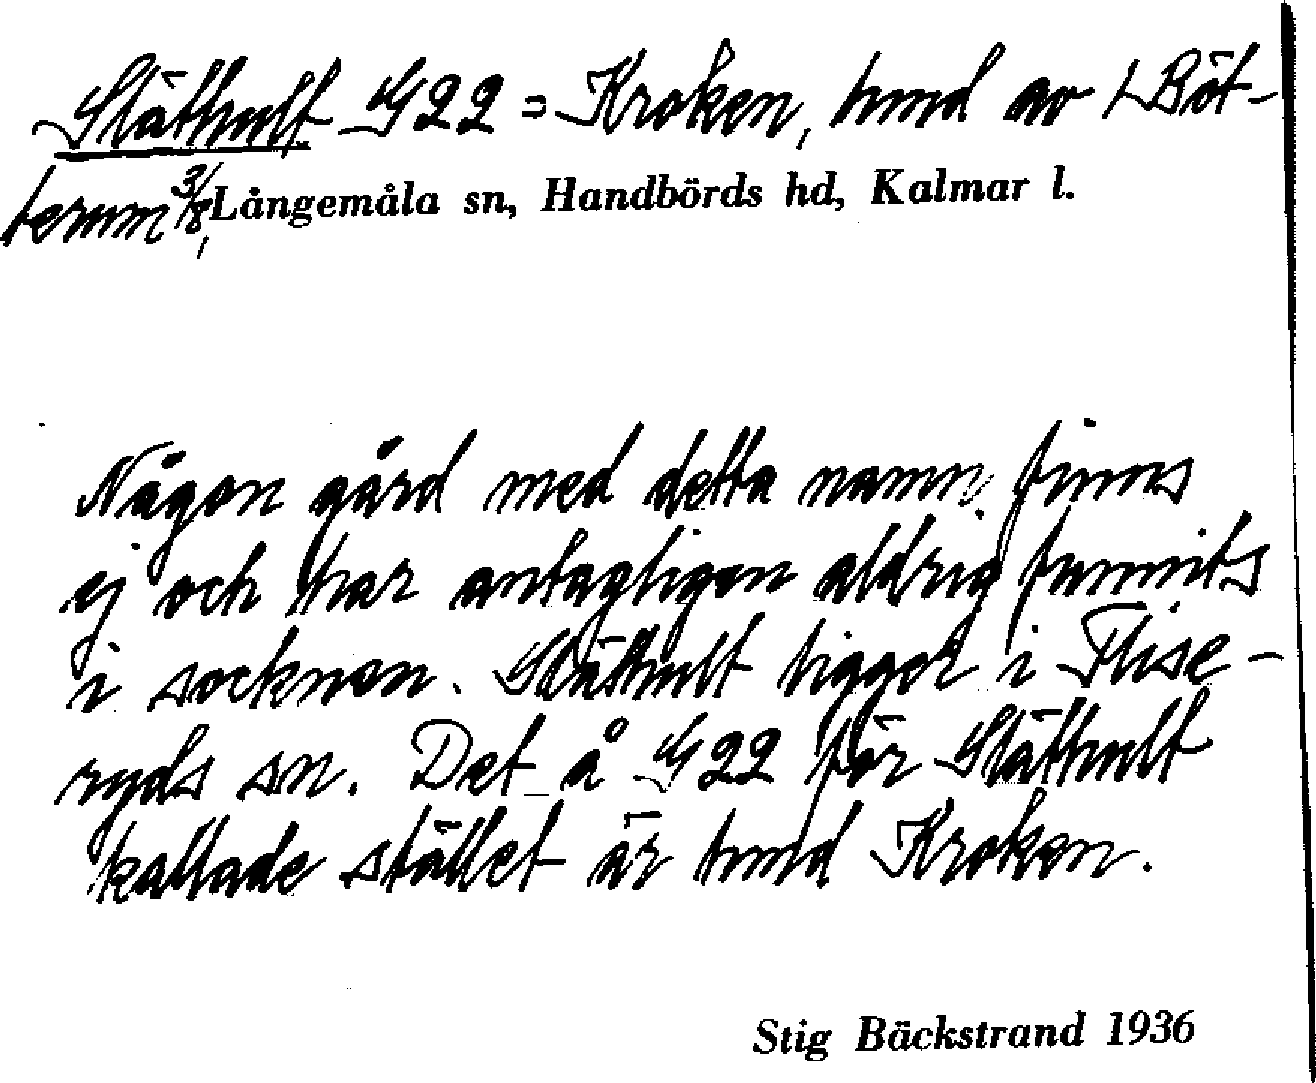 Släthult G22 = Kroken, hmd av 1 Böt-
terum 3/8, Långemåla sn, Handbörds hd, Kalmar l.
Någon gård med detta namn finns
ej och har antagligen aldrig funnits
i socknen. Släthult ligger i Flise-
ryds sn. Det å G22 för Släthult
kallade stället är hmd Kroken.
Stig Bäckstrand 1936